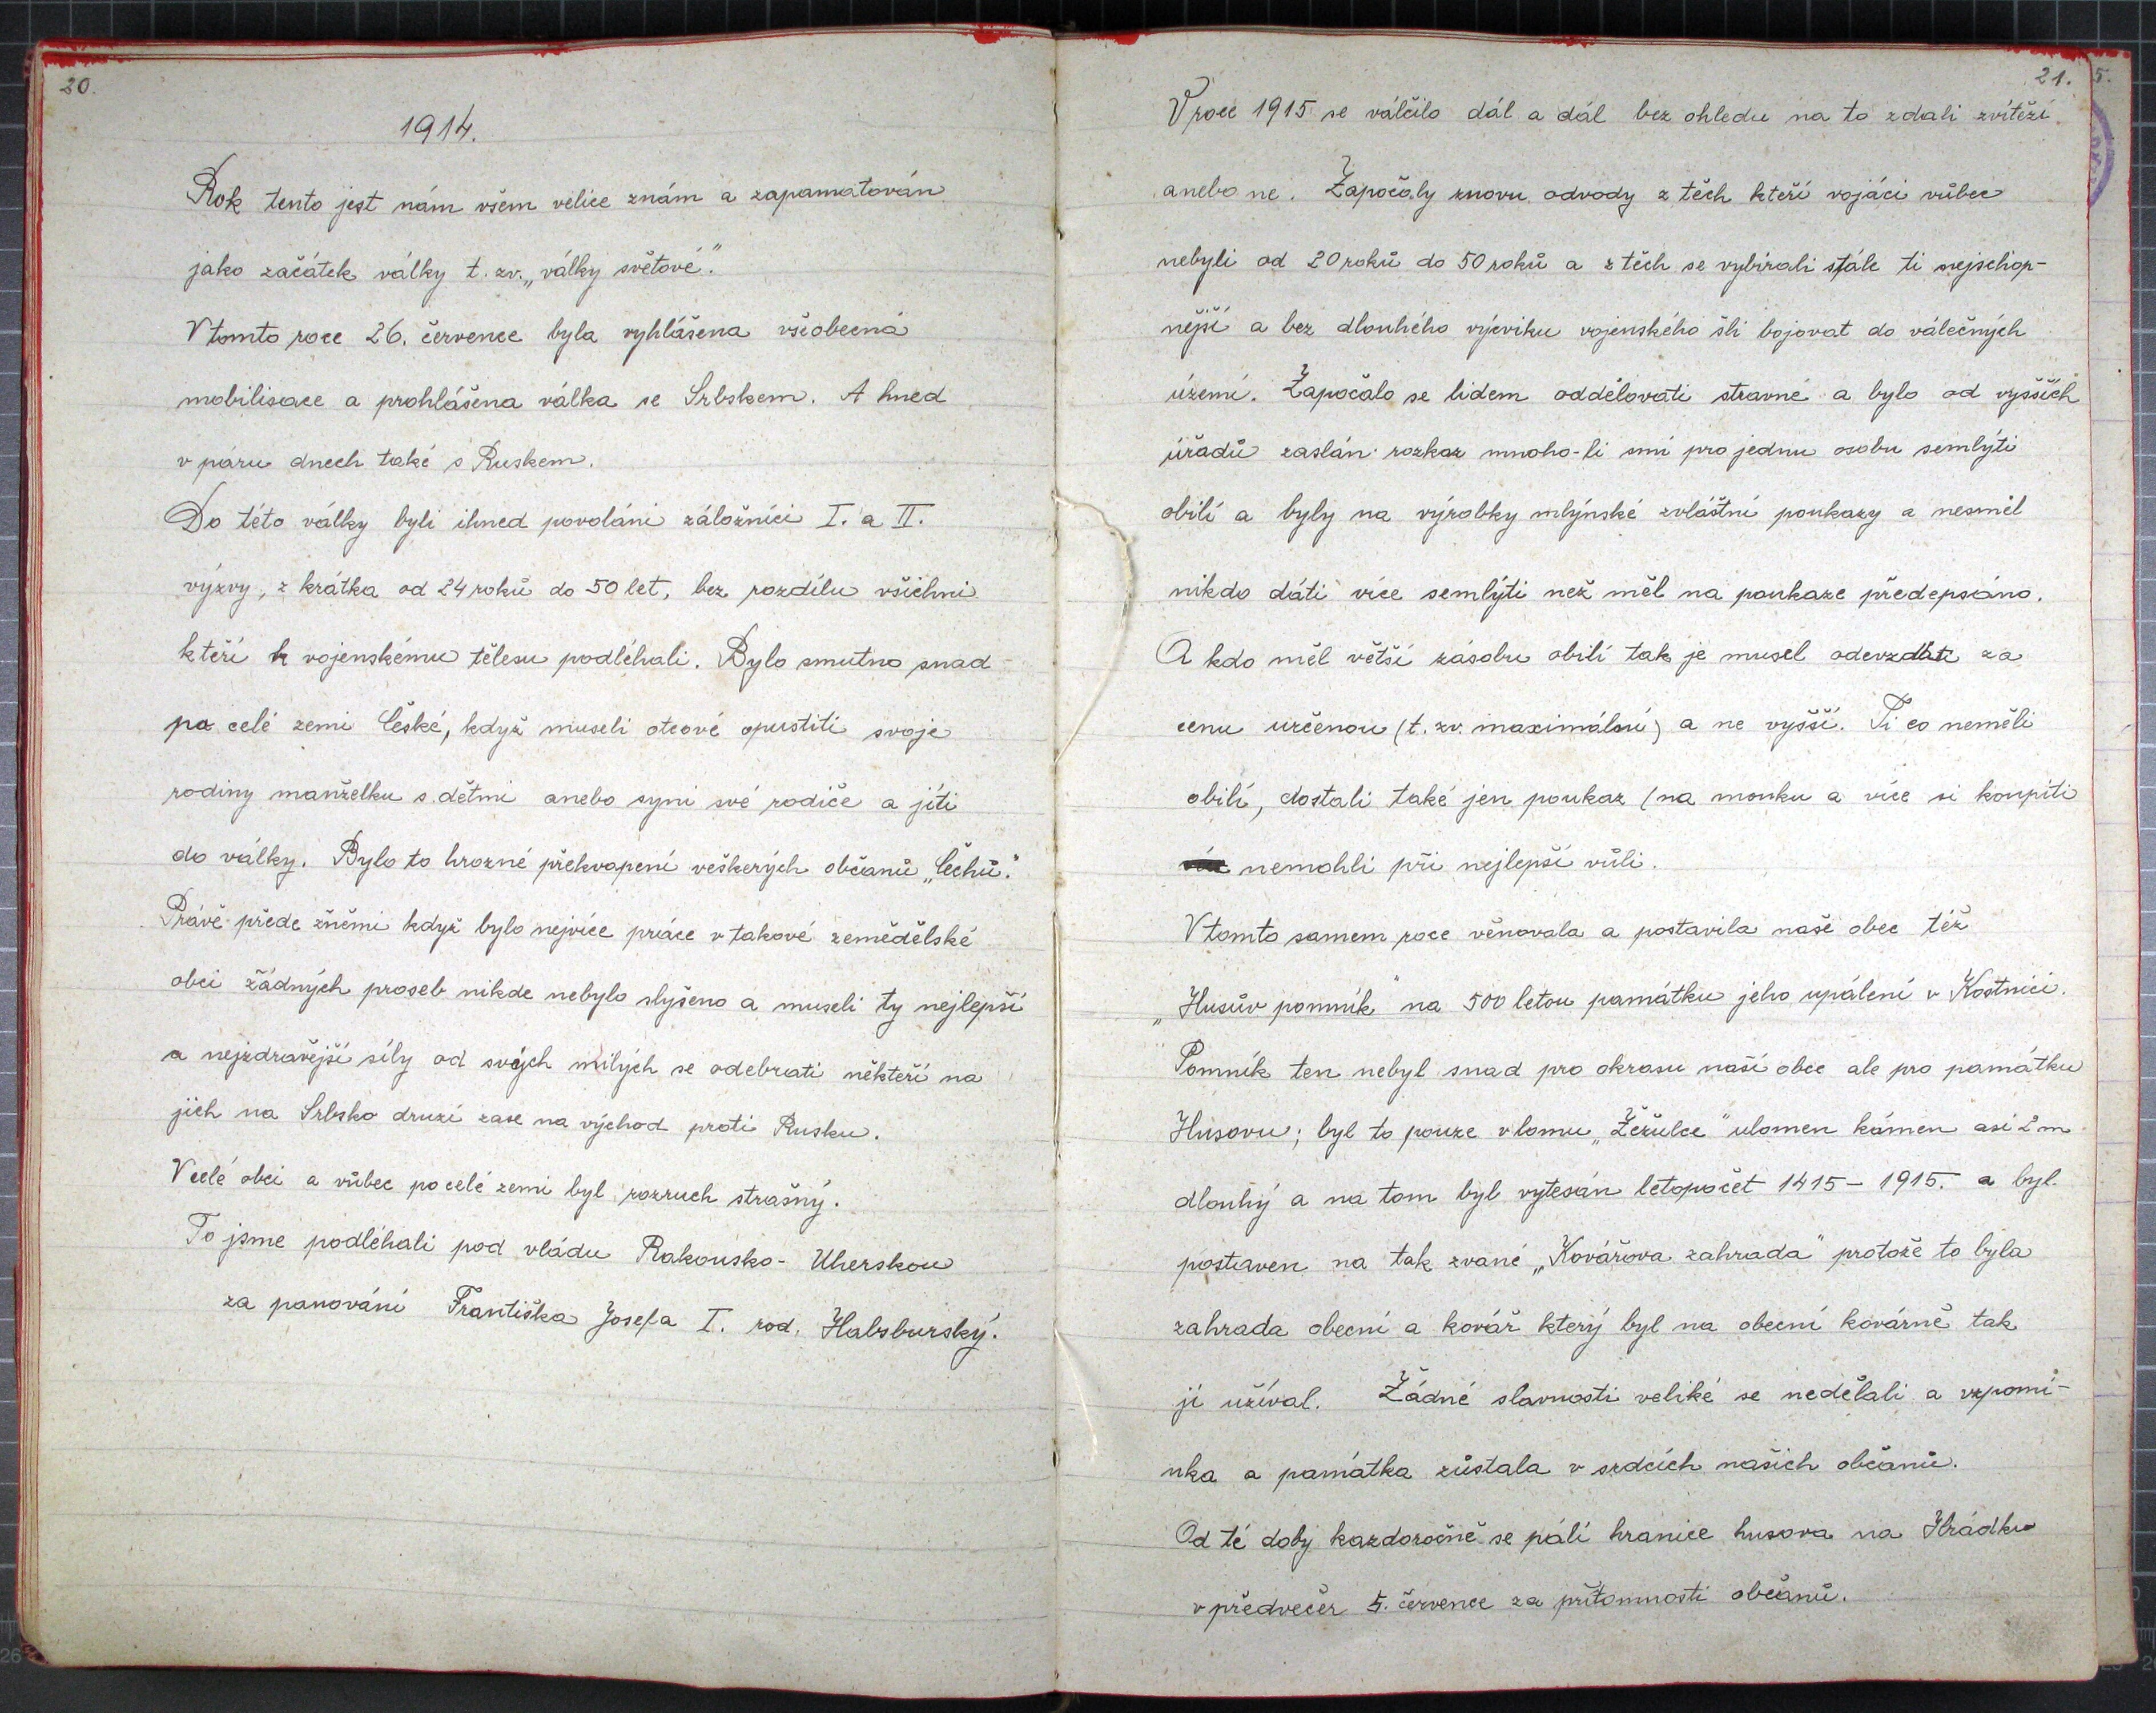 20.
1914.
Rok tento jest nám všem velice znám a zapamatován
jako začátek války t. zv. „války světové."
V tomto roce 26. července byla vyhlášena všeobecná
mobilisace a prohlášena válka se Srbskem. A hned
v páru dnech také s Ruskem.
Do této války byli ihned povoláni záložníci I. a II.
výzvy, z krátka od 24 roků do 50 let, bez rozdílu všichni
kteří k vojenskému tělesu podléhali. Bylo smutno snad
po celé zemi České, když museli otcové opustiti svoje
rodiny manželku s dětmi anebo syni své rodiče a jíti
do války. Bylo to hrozné překvapení veškerých občanů „Čechů."
Právě přede žněmi když bylo nejvíce práce v takové zemědělské
obci žádných proseb nikde nebylo slyšeno a museli ty nejlepší
a nejzdravější síly od svých milých se odebrati někteří na
jich na Srbsko druzí zase na východ proti Rusku.
V celé obci a vůbec po celé zemi byl rozruch strašný.
To jsme podléhali pod vládu Rakousko-Uherskou
za panování Františka Josefa I. rod. Habsburský.
21.
5.
V roce 1915 se válčilo dál a dál bez ohledu na to zdali zvítězí
anebo ne. Započaly znovu odvody z těch kteří vojáci vůbec
nebyli od 20 roků do 50 roků a z těch se vybírali stále ti nejschop-
nější a bez dlouhého výcviku vojenského šli bojovat do válečných
území. Započalo se lidem oddělovati stravné a bylo od vyšších
úřadů zaslán rozkaz mnoho-li smí pro jednu osobu semlýti
obilí a byly na výrobky mlýnské zvláštní poukazy a nesměl
nikdo dáti více semlýti než měl na poukaze předepsáno.
A kdo měl větší zásobu obilí tak je musel odevzdati za
cenu určenou (t. zv. maximální) a ne vyšší. Ti co neměli
obilí, dostali také jen poukaz (na mouku a více si koupiti
nemohli při nejlepší vůli.
V tomto samem roce věnovala a postavila naše obec též
„Husův pomník" na 500 letou památku jeho upálení v Kostnici.
Pomník ten nebyl snad pro okrasu naší obce ale pro památku
Husovu; byl to pouze v lomu „Žežulce" ulomen kámen asi 2 m
dlouhý a na tom byl vytesán letopočet 1415 - 1915. a byl
postaven na tak zvané „Kovářova zahrada" protože to byla
zahrada obecní a kovář který byl na obecní kovárně tak
jí užíval. Žádné slavnosti veliké se nedělali a vzpomí-
nka a památka zůstala v srdcích našich občanů.
Od té doby každoročně se pálí hranice husova na Hrádku
v předvečer 5. července za přítomnosti občanů.